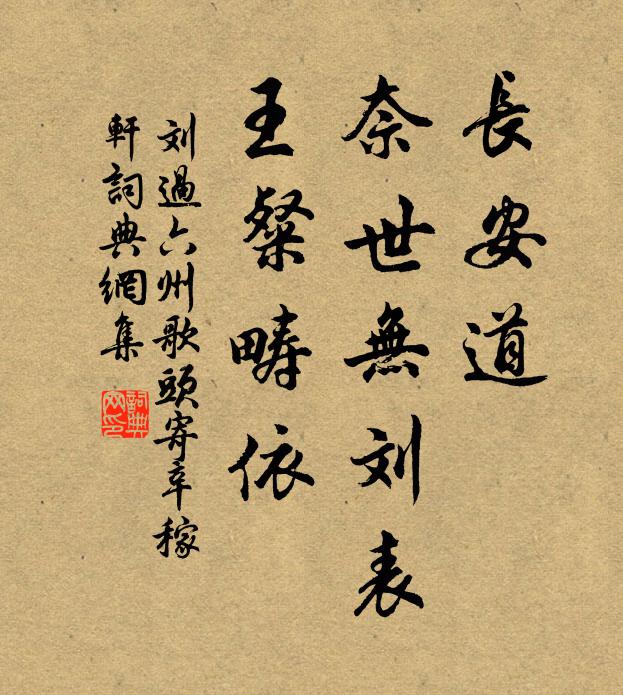 長安道
奈世無刘表
王粲疇依
刘過六州歌頭寄辛稼
軒詞典網集
詞典
网印